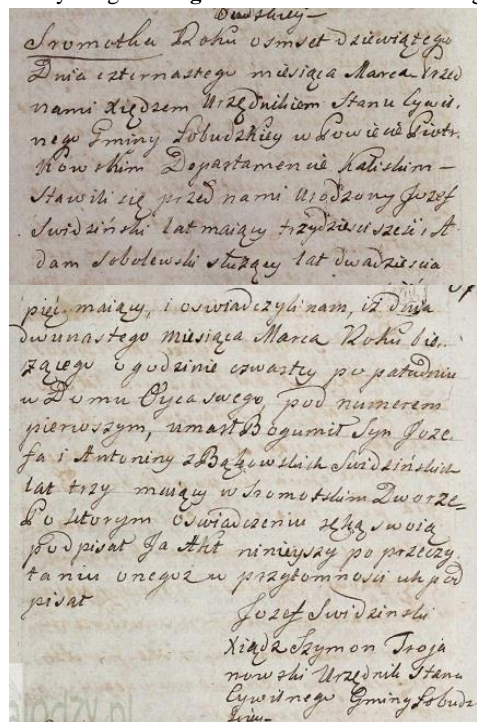 Dudskiey
Sromotka Roku osmset dziewiątego
Dnia czternastego miesiąca Marca Przed
nami Xiędzem Urzędnikiem Stanu Cywil.
nego Gminy Łobudzkiey w Powiecie Piotr.
kowskim Departamencie Kaliskim –
Stawili się przed nami Urodzony Jozef
Swidziński lat maiący trzydzieści sześć, A
dam Sobolewski służący lat dwadzieścia
pięć maiący, i oswiadczyli nam, iż dnia
dwunastego miesiąca Marca Roku bie.
żącego o godzinie czwartey po południu
w Domu Oyca swego pod numerem
pierwszym, umarł Bogumił Syn Joze
fa i Antoniny z Bąkowskich Swidzińskich
lat trzy maiący w Sromotskim Dworze
Po którym oświadczeniu ręką swoią
podpisał Ja Akt ninieyszy po przeczy
taniu onegoż w przytomności ich pod
pisał
Jozef Swidzinski
Xiądz Szymon Troja
nowski Urzędnik Stanu
Cywilnego Gminy Łobudz